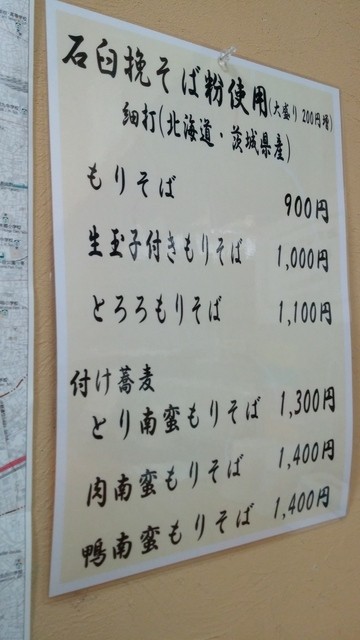 石臼挽そば粉使用(大盛り200円増)
細打(北海道・茨城県産)
もりそば 900円
生玉子付きもりそば 1,000円
とろろもりそば 1,100円
付け蕎麦
とり南蛮もりそば 1,300円
肉南蛮もりそば 1,400円
鴨南蛮もりそば 1,400円